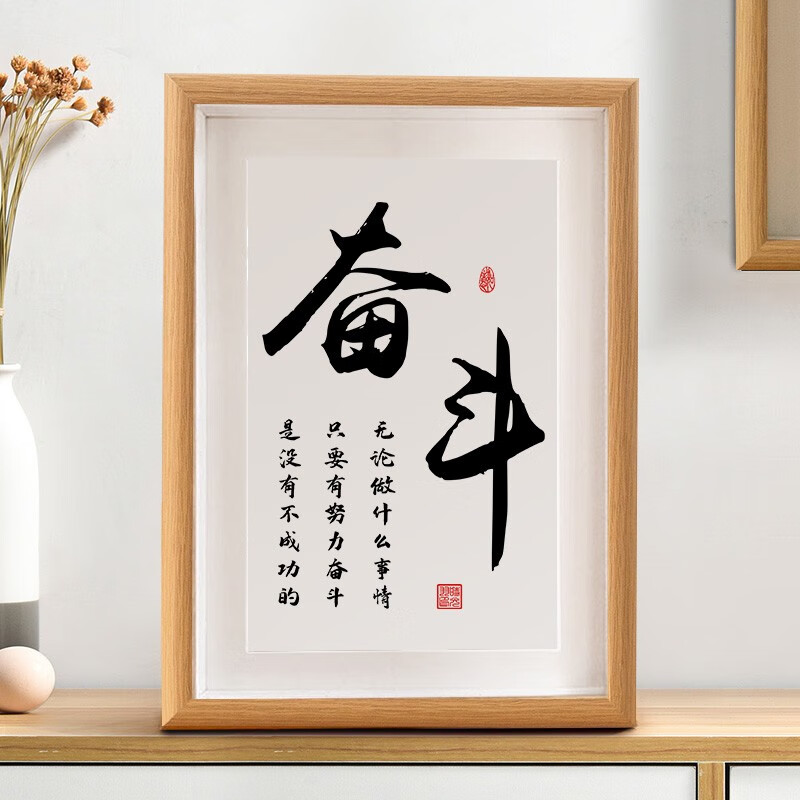 奋斗
无论做什么事情
只要有努力奋斗
是没有不成功的